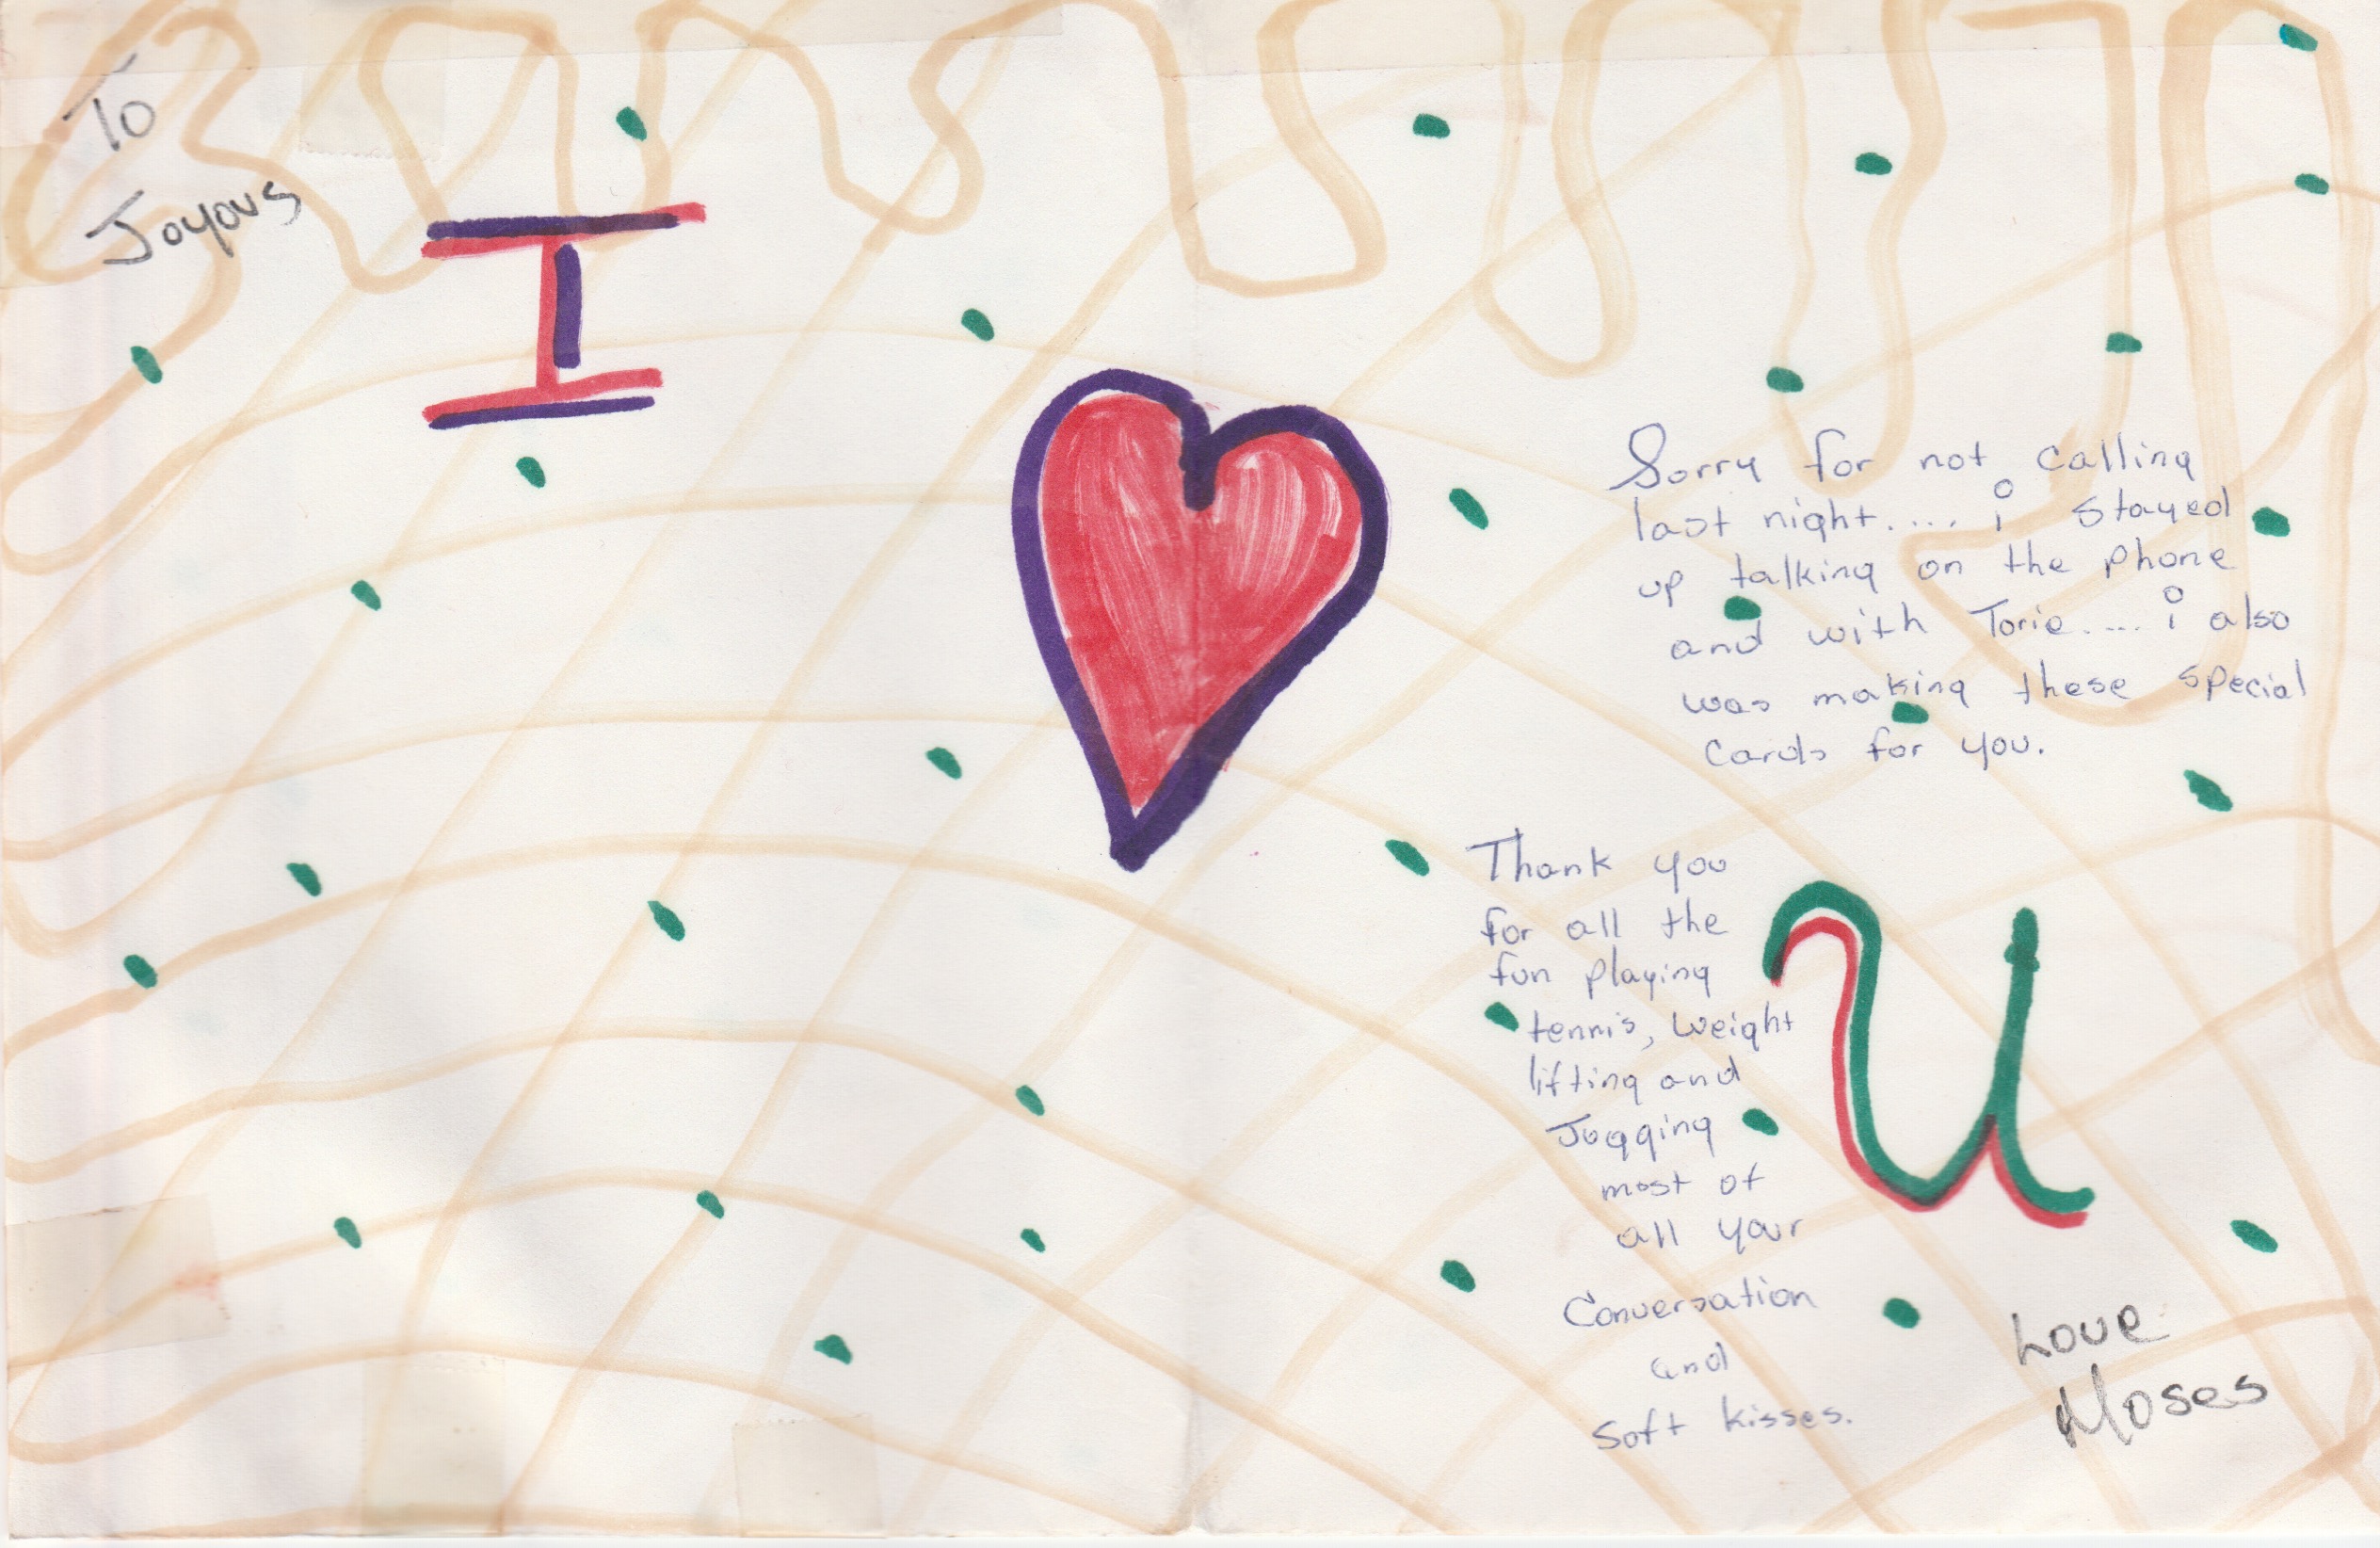 To
Joyous
I
U
Sorry for not calling
last night.... i stayed
up talking on the phone
and with Torie.... i also
was making these special
cards for you.
Thank you
for all the
fun playing
tennis, weight
lifting and
Jogging
most of
all your
Conversation
and
soft kisses.
Love
Moses